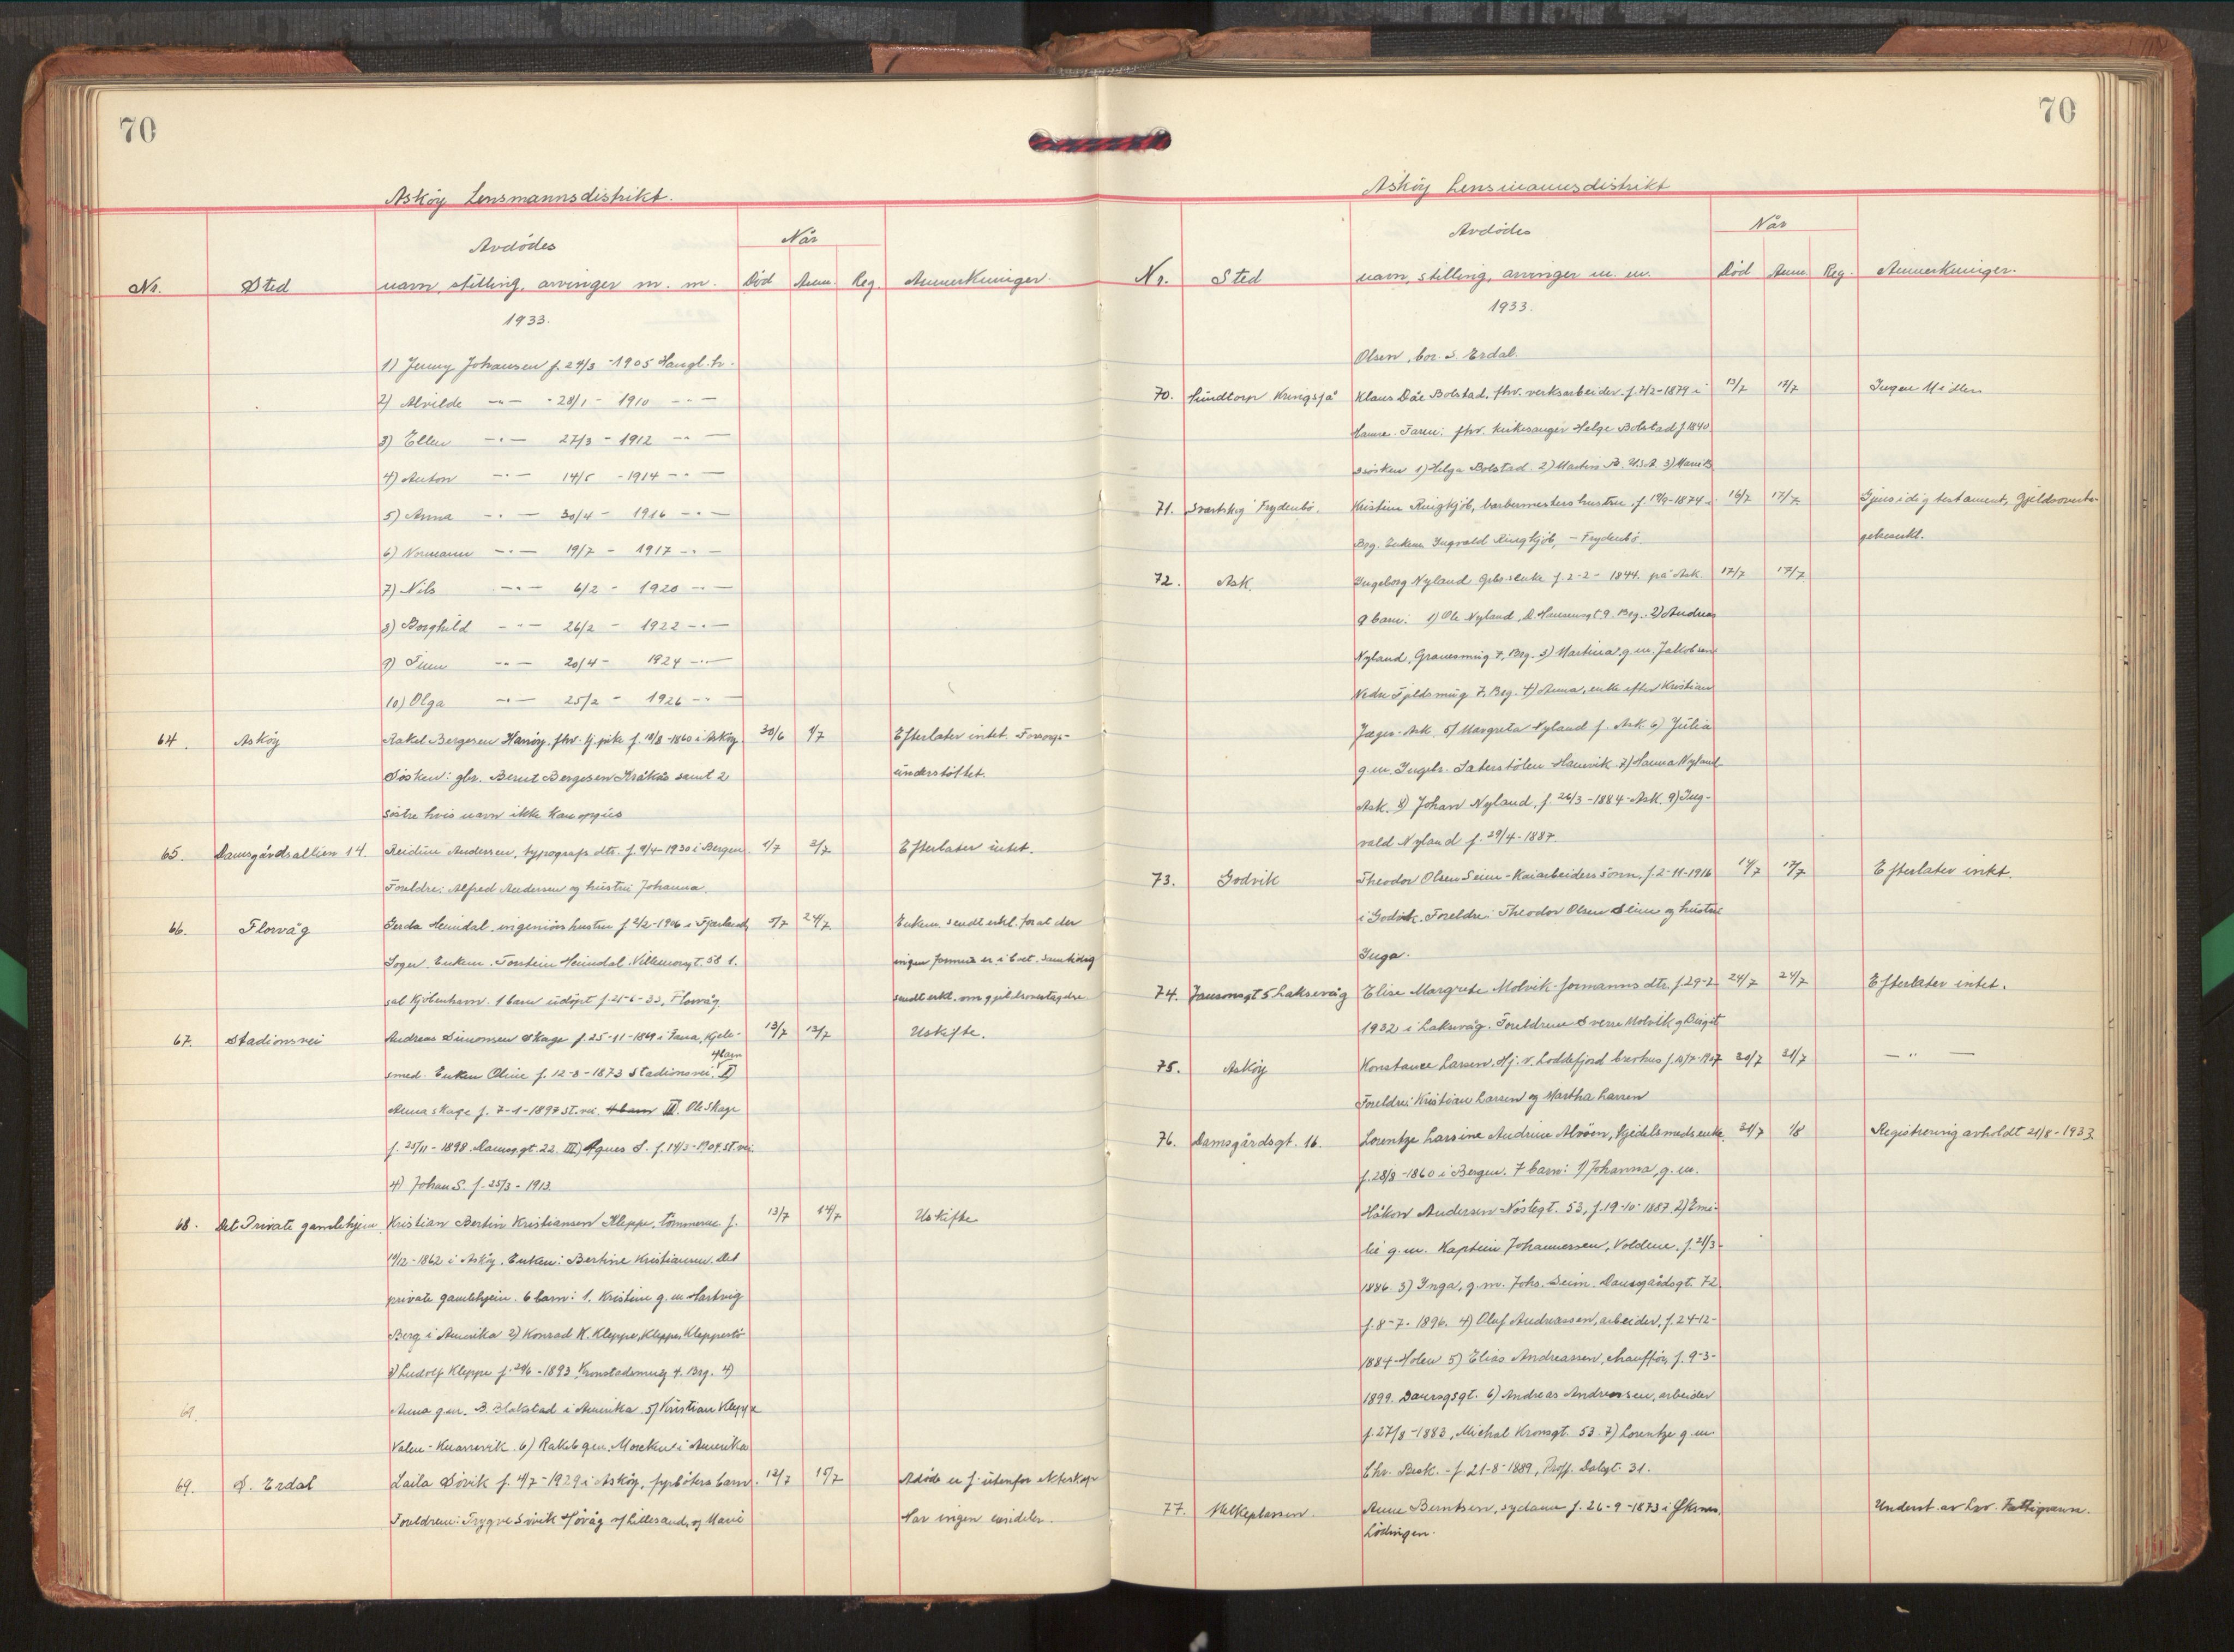 70
Asköy Lensmannsdistrikt.
Avdödes
Når
Nr. Sted navn, stilling, arvinger m. m. Död Anm. Reg. Anmerkninger.
1933.
1) Jenny Johansen f. 24/3 - 1905 Haugl. h.
2) Alvilde -"- - 28/1 - 1910 -"-
3) Ellen -"- 27/3 - 1912 -"-
4) Anton -"- 14/5 - 1914 -"-
5) Anna -"- 30/4 - 1916 -"-
6) Normann -"- 19/7 - 1917 -"-
7) Nils -"- 6/2 - 1920 -"-
8) Borghild -"- 26/2 - 1922 -"-
9) Finn -"- 20/4 - 1924 -"-
10) Olga -"- 25/2 - 1926 -"-
64. Asköy Rakel Bergesen Hanöy, fhv. tj. pike f. 18/8 - 1860 i Asköy 30/6 1/7 Efterlater intet. Forsorgs-
Sösken: gbr. Bernt Bergesen Kråkås samt 2 understöttet.
söstre hvis navn ikke kan opgis
65. Damsgårdsalléen 14. Reidun Andersen, typografs dtr. f. 9/4 - 1930 i Bergen 1/7 3/7 Efterlater intet.
Foreldre: Alfred Andersen og hustru Johanna.
66. Florvåg Gerda Heindal, ingeniörs hustru f. 2/2 - 1906 i Fjærland, 5/7 24/7 Enkem. sendt erkl. for at der
Sogn. Enkem. Torstein Heindal. Villemosgt. 58 1. ingen formue er i boet. Samtidig
sal Kjöbenhavn. 1 barn udöpt f. 21-6-33, Florvåg sendt erkl. om gjeldsovertagelse
67. Stadionsvei Andreas Simonsen Skage f. 25-11-1869 i Fana, Kjele- 13/7 13/7 Uskifte.
4 barn
smed. Enken Oline f. 12-8-1873 Stadionsvei. I)
Anna Skage f. 7-1-1897 St. vei. 4 barn II. Ole Skage
f. 25/11 - 1898 Damsg.gt. 22. III) Agnes S. f. 14/3 - 1904 St. vei.
4) Johan S. f. 25/3 - 1913.
68. Det Private gamlehjem. Kristian Bertin Kristiansen Kleppe, tömmerm. f. 13/7 14/7 Uskifte
19/12 - 1862 i Asköy. Enken: Bertine Kristiansen. Det
private gamlehjem. 6 barn: 1. Kristine g. m. Hartvig
Berg i Amerika 2) Konrad K. Kleppe, Kleppe, Kleppestö
3) Ludolf Kleppe f. 29/6 - 1893 Kronstadsmug 4. Brg. 4)
69. Anna g. m. B. Blakstad i Amerika. 5) Kristian Kleppe
Valen - Knarrevik. 6) Rakel g. m. i Amerika
69. S. Erdal Laila Sövik f. 4/7 - 1929 i Asköy, fyrböters barn. 12/7 15/7 Avdöde er f. utenfor ekteskap
Foreldrene: Trygve Sövik Höväg v/ Lillesand, og Marie Har ingen eiendeler.
70
Asköy Lensmannsdistrikt
Avdödes
Når
Nr. Sted navn, stilling, arvinger m. m. Död Anm. Reg. Anmerkninger.
1933.
Olsen, boe. S. Erdal.
70. Kringsjå Klaus Dåe Bolstad, fhv. verksarbeider f. 7/2 - 1879 i 13/7 17/7 Ingen Midler
Hamre. Faren: fhv. kirkesanger Helge Bolstad f. 1840
Sösken 1) Helga Bolstad 2) Martin B. U.S.A. 3) Marie B.
71. Frydenbö. Kristine Ringkjöb, barbermesters hustru, f. 19/9 - 1874 i 16/7 17/7 Gjensidig testament, Gjeldsoverta-
Brg. Enkem. Ingvald Ringkjöb, - Frydenbö. gelseserkl.
72. Ask. Ingeborg Nyland Gbrs. enke f. 2-2-1844. på Ask. 17/7 17/7
9 barn: 1) Ole Nyland, D. gt. 9. Brg. 2) Andreas
Nyland, 7, Brg. 3) Martina g. m. Jakobsen
Nedre Fjeldsmug 7, Brg. 4) Anna, enke efter Kristian
Jæger - Ask. 5) Margreta Nyland f. Ask. 6) Julia
g. m. Ingebr. Sæterstölen Hanevik. 7) Hanna Nyland
Ask. 8) Johan Nyland, f. 26/3 - 1884 - Ask. 9) Ing-
vald Nyland f. 29/4 - 1887.
73. Godvik Theodor Olsen Seim - Kaiarbeiders sönn, f. 2-11-1916 14/7 17/7 Efterlater intet.
i Godvik. Foreldre: Theodor Olsen Seim og hustru
Inga.
74. Jansonsgt 5 Laksevåg Elise Margrete Molvik - formanns dtr. f. 29-2 24/7 24/7 Efterlater intet.
1932 i Laksevåg. Foreldrene Sverre Molvik og Birgit
75. Asköy Konstance Larsen. Hj. v. Loddefjord f. 10/7 - 1907 20/7 21/7 - " -
Foreldre: Kristian Larsen og Martha Larsen
76. Damsgårdsgt. 16. Lorentze Larsine Andrine Alvöen, Kjedelsmeds enke. 31/7 1/8 Registrering avholdt 21/8 - 1933
f. 28/8 - 1860 i Bergen. 7 barn: 1) Johanna, g. m.
Håkon Andersen Nöstegt. 53, f. 19-10-1887. 2) Emi-
lie g. m. Kaptein Johannessen, Voldene. f. 21/3 -
1886. 3) Inga, g. m. Johs. Seim. Damsgårdsgt. 72.
f. 8-7-1896. 4) Oluf Andreassen, arbeider, f. 24-12-
1884 - Holen 5) Elias Andreassen, chaufför, f. 9-3-
1899. Damsgsgt. 6) Andreas Andreassen, arbeider
f. 27/8 - 1883, Michal Kronsgt. 53. 7) Lorentze g. m.
Chr. Beck. - f. 21-8-1889, Proff. Dahlgt. 31.
77. Melkeplassen. Anne Berntsen, sydame f. 26-9-1873 i Underst. av Lsv. Fattigvesen.
Lödingen.